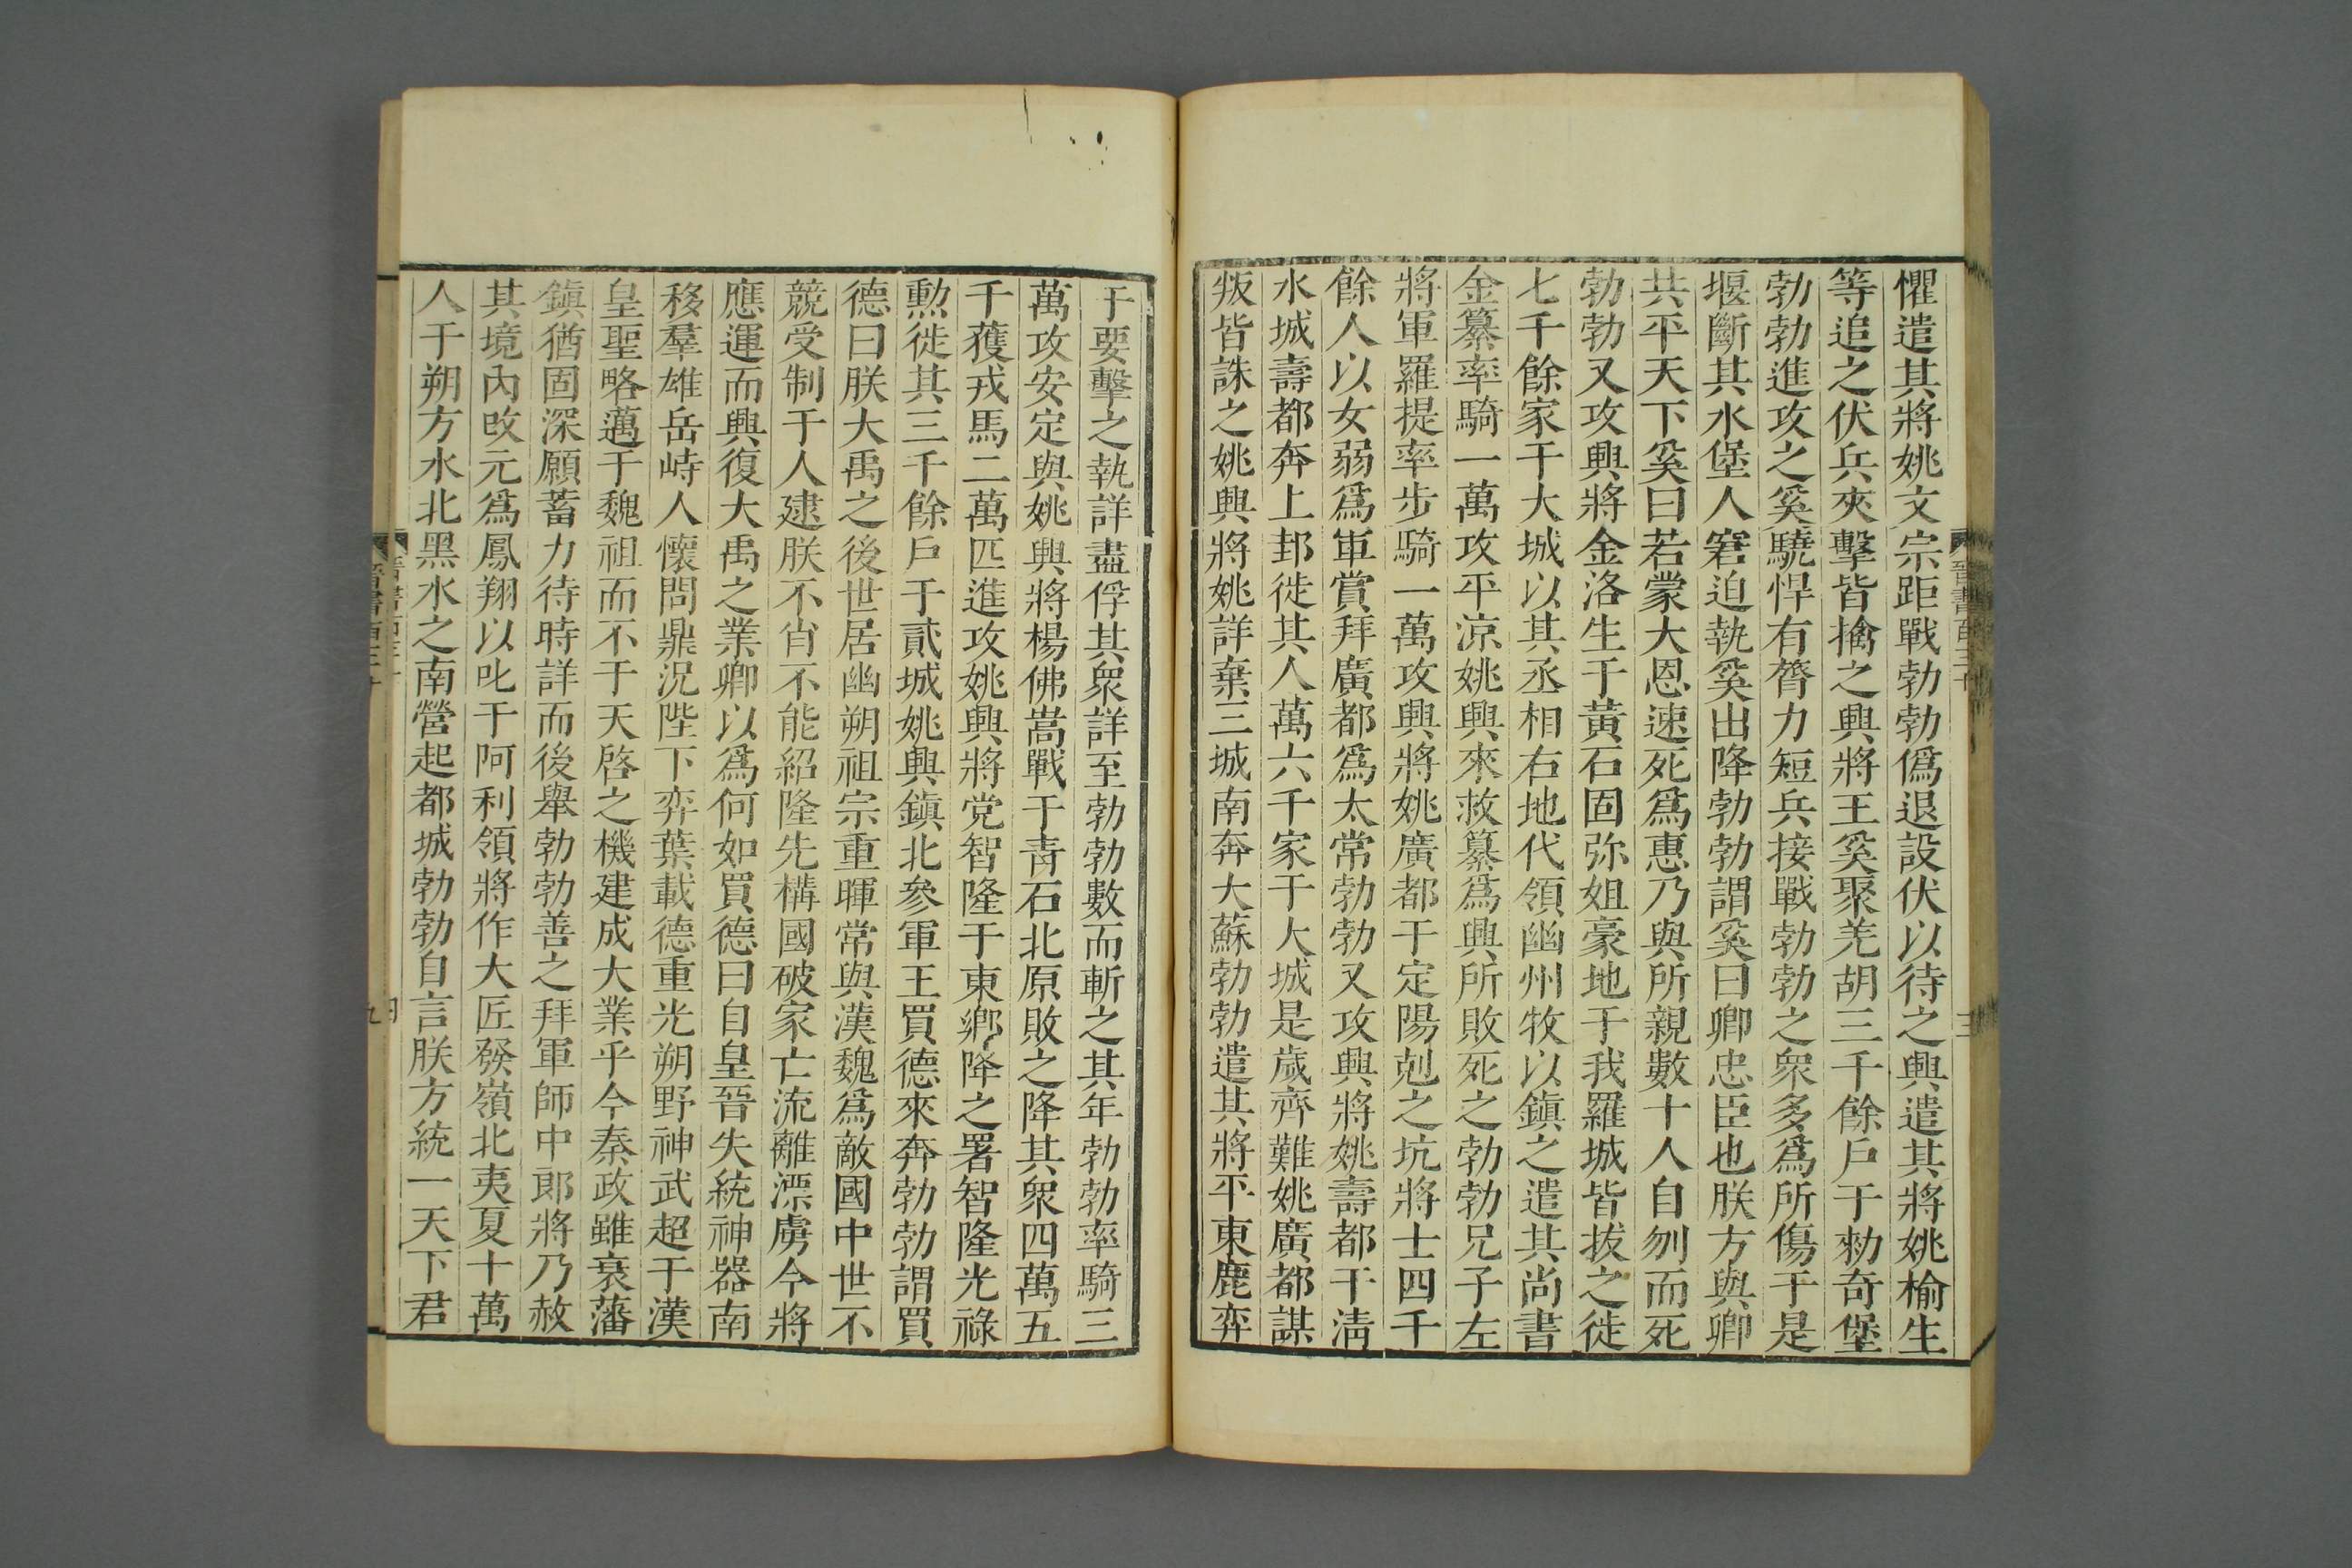 懼遣其將姚文宗距戰勃勃僞退設伏以待之興遣其將姚榆生
等追之伏兵夾擊皆擒之興將王奚聚羌胡三千餘戶于勑奇堡
勃勃進攻之奚驍悍有膂力短兵接戰勃勃之衆多爲所傷于是
堰斷其水堡人窘迫執奚出降勃勃謂奚曰卿忠臣也朕方與卿
共平天下奚曰若蒙大恩速死爲惠乃與所親數十人自刎而死
勃勃又攻興將金洛生于黃石固弥姐豪地于我羅城皆拔之徙
七千餘家于大城以其丞相右地代領幽州牧以鎮之遣其尚書
金纂率騎一萬攻平涼姚興來救纂爲興所敗死之勃勃兄子左
將軍羅提率步騎一萬攻興將姚廣都于定陽剋之坑將士四千
餘人以女弱爲軍賞拜廣都爲太常勃勃又攻興將姚壽都于淸
水城壽都奔上邽徙其人萬六千家于大城是歲齊難姚廣都謀
叛皆誅之姚興將姚詳棄三城南奔大蘇勃勃遣其將平東鹿弈
于要擊之執詳盡俘其衆詳至勃勃數而斬之其年勃勃率騎三
萬攻安定與姚興將楊佛嵩戰于靑石北原敗之降其衆四萬五
千獲戎馬二萬匹進攻姚興將党智隆于東鄉降之署智隆光祿
勲徙其三千餘戶于貳城姚興鎮北參軍王買德來奔勃勃謂買
德曰朕大禹之後世居幽朔祖宗重暉常與漢魏爲敵國中世不
競受制于人逮朕不肖不能紹隆先構國破家亡流離漂虜今將
應運而興復大禹之業卿以爲何如買德曰自皇晉失統神器南
移羣雄岳峙人懷問鼎況陛下弈葉載德重光朔野神武超于漢
皇聖略邁于魏祖而不于天啓之機建成大業乎今秦政雖衰藩
鎮猶固深願蓄力待時詳而後舉勃勃善之拜軍師中郎將乃赦
其境內改元爲鳳翔以叱干阿利領將作大匠發嶺北夷夏十萬
人于朔方水北黑水之南營起都城勃勃自言朕方統一天下君
晉書百三十
三